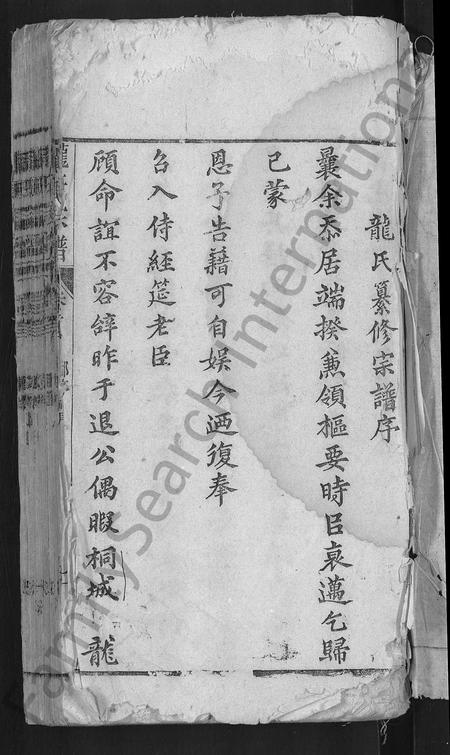 龍氏纂修宗譜序
曩余忝居端揆兼領樞要時以衰邁乞歸
已蒙
恩予告藉可自娛今迺復奉
召入侍經筵老臣
顧命誼不容辝昨于退公偶暇桐城 龍
龍氏宗譜
FamilySearch International